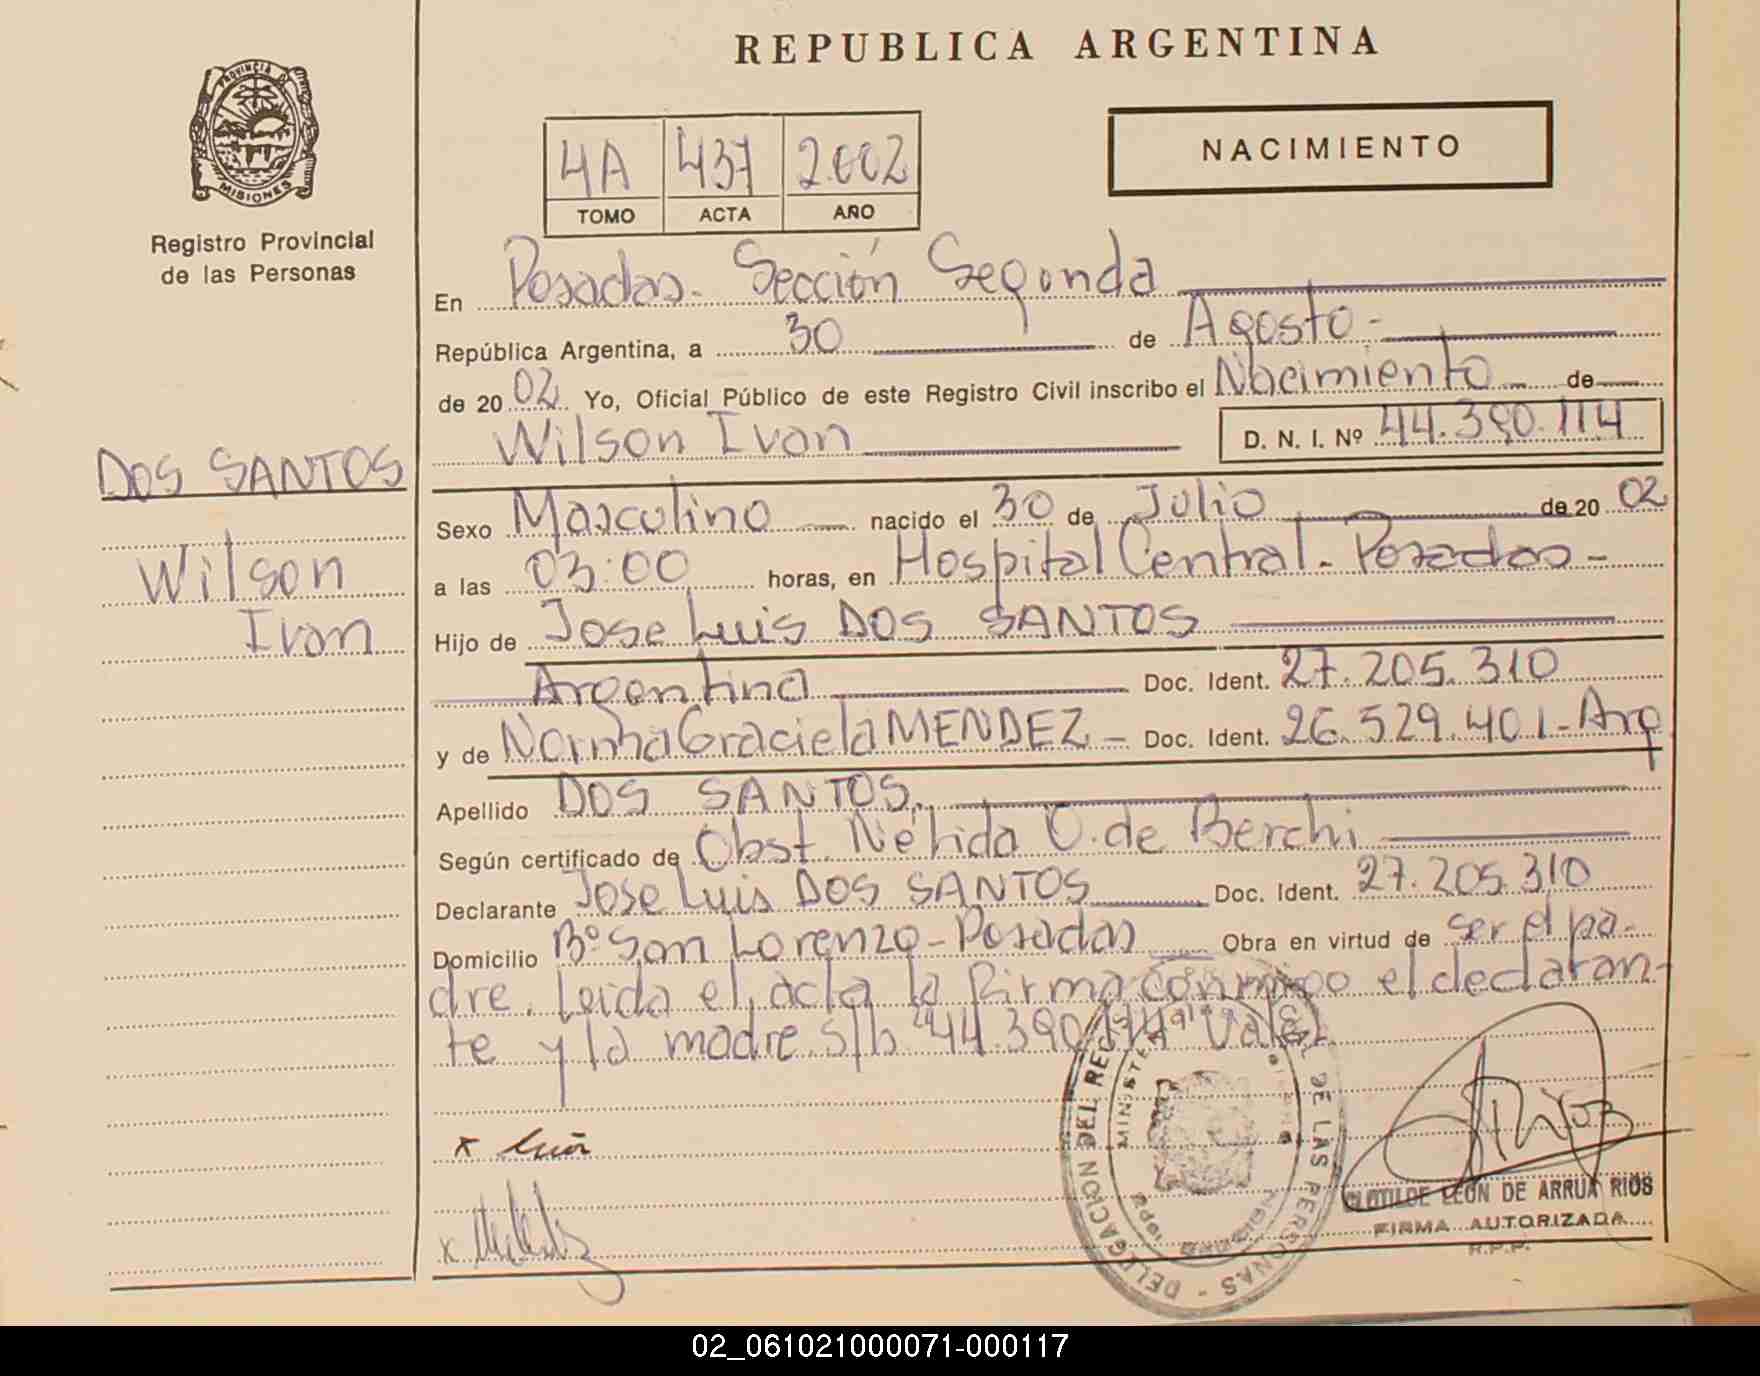 REPUBLICA ARGENTINA
PROVINCIA D
MISIONES
Registro Provincial
de las Personas
4A 437 2.002
TOMO ACTA AÑO
NACIMIENTO
En Posadas. Sección Segunda
República Argentina, a 30 de Agosto -
de 20 02 Yo, Oficial Público de este Registro Civil inscribo el Nacimiento de
Wilson Ivan D. N. I. Nº 44.390.114
DOS SANTOS
Wilson
Ivan
Sexo Masculino nacido el 30 de Julio de 20 02
a las 03:00 horas, en Hospital Central - Posadas -
Hijo de Jose Luis DOS SANTOS
Argentina Doc. Ident. 27.205.310
y de Norma Graciela MENDEZ - Doc. Ident. 26.529.401 - Arg
Apellido DOS SANTOS.
Según certificado de Obst. Nélida O. de Berchi
Declarante Jose Luis DOS SANTOS Doc. Ident. 27.205.310
Domicilio Bº San Lorenzo - Posadas Obra en virtud de ser el pa-
dre. Leida el acta la firma conmigo el declaran-
te y la madre. S/b "44.390.114" Vale.
x Luis
x
DELEGACION DEL REG DE LAS PERSONAS -
MINISTE
A Rios
CLOTILDE LEON DE ARRUA RIOS
FIRMA AUTORIZADA
R.P.P.
02_061021000071-000117